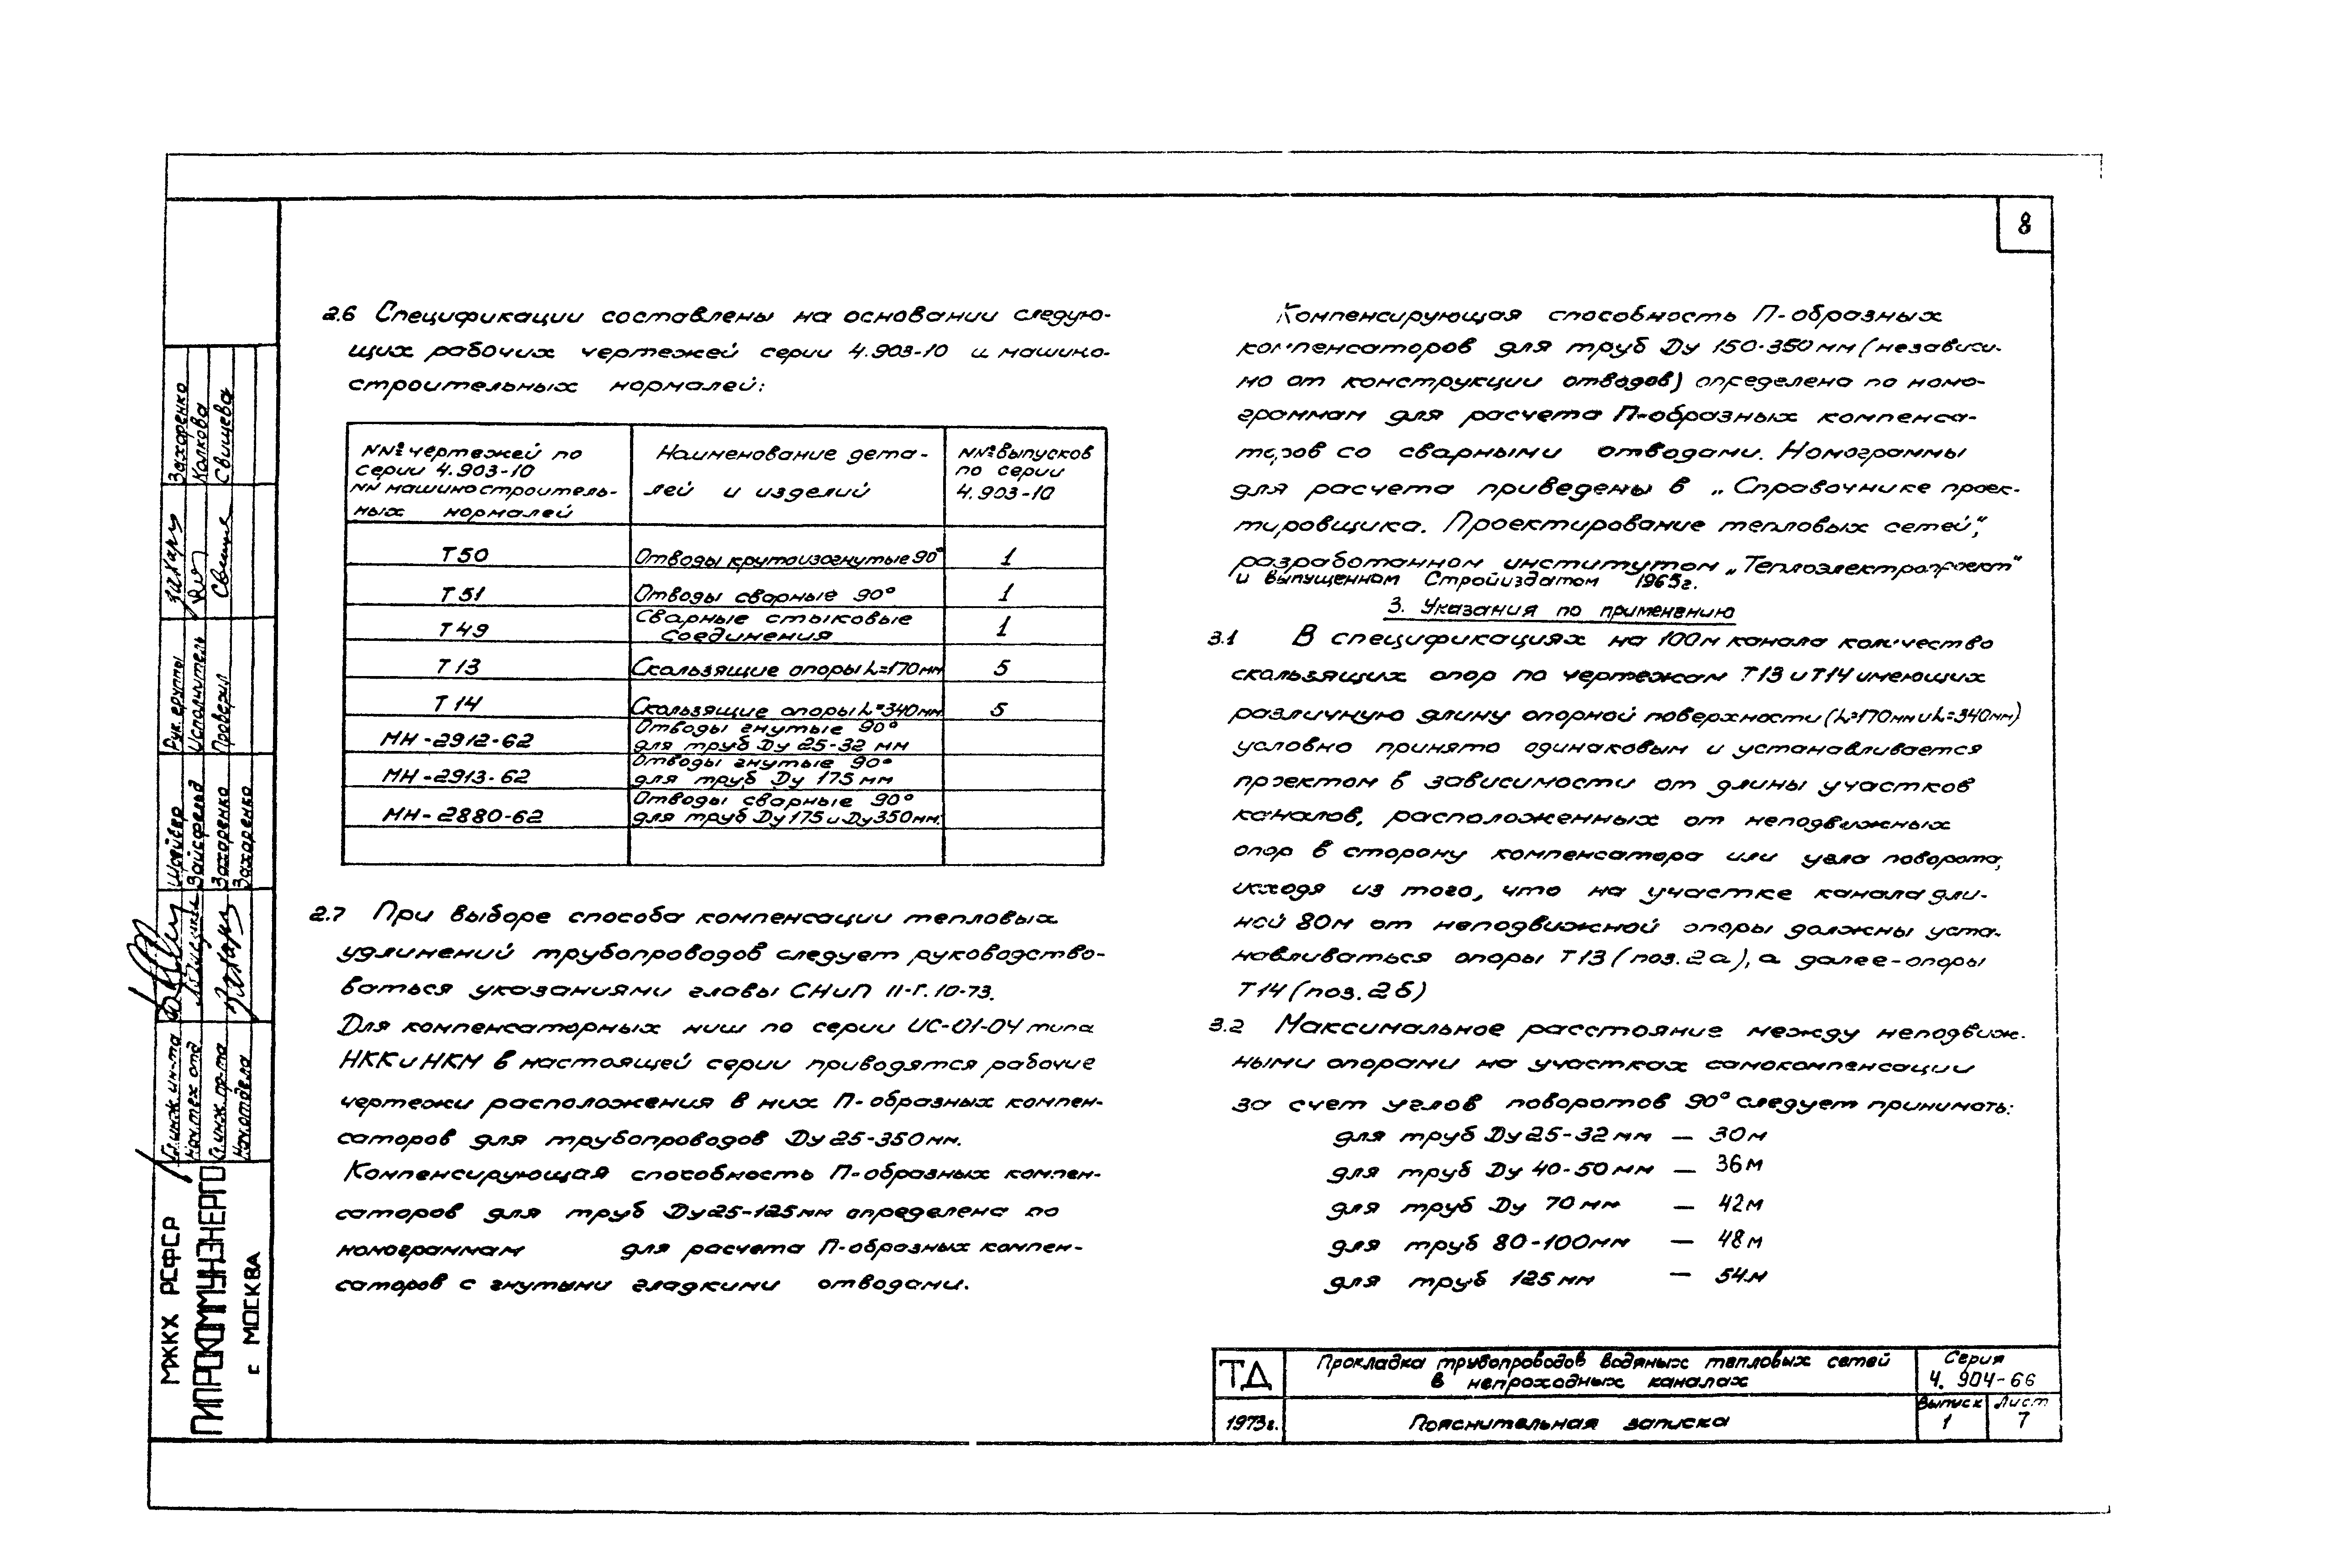 8
2.6 Спецификации составлены на основании следую-
щих рабочих чертежей серии 4.903-10 и машино-
строительных нормалей:
NN⁰ чертежей по
серии 4.903-10
NN машиностроитель-
ных нормалей
Наименование дета-
лей и изделий
NN⁰ выпусков
по серии
4.903-10
Т50 Отводы крутоизогнутые 90° 1
Т51 Отводы сварные 90° 1
Т49 Сварные стыковые
соединения 1
Т13 Скользящие опоры L=170мм 5
Т14 Скользящие опоры L=340мм 5
МН-2912-62 Отводы гнутые 90°
для труб Ду 25-32 мм
МН-2913-62 Отводы гнутые 90°
для труб Ду 175 мм
МН-2880-62 Отводы сварные 90°
для труб Ду 175 и Ду 350мм.
2.7 При выборе способа компенсации тепловых
удлинений трубопроводов следует руководство-
ваться указаниями главы СНиП II-Г.10-73.
Для компенсаторных ниш по серии ИС-01-04 типа
НКК и НКМ в настоящей серии приводятся рабочие
чертежи расположения в них П-образных компен-
саторов для трубопроводов Ду 25-350мм.
Компенсирующая способность П-образных компен-
саторов для труб Ду 25-125мм определена по
номограммам для расчета П-образных компен-
саторов с гнутыми гладкими отводами.
Компенсирующая способность П-образных
компенсаторов для труб Ду 150-350мм (независи-
мо от конструкции отводов) определена по номо-
граммам для расчета П-образных компенса-
торов со сварными отводами. Номограммы
для расчета приведены в „Справочнике проек-
тировщика. Проектирование тепловых сетей",
разработанном институтом „Теплоэлектропроект"
и выпущенном Стройиздатом 1965г.
3. Указания по применению
3.1 В спецификациях на 100м канала количество
скользящих опор по чертежам Т13 и Т14 имеющих
различную длину опорной поверхности (L=170мм и L=340мм)
условно принято одинаковым и устанавливается
проектом в зависимости от длины участков
каналов, расположенных от неподвижных
опор в сторону компенсатора или угла поворота,
исходя из того, что на участке канала дли-
ной 80м от неподвижной опоры должны уста-
навливаться опоры Т13 (поз. 2а), а далее - опоры
Т14 (поз. 2б)
3.2 Максимальное расстояние между неподвиж-
ными опорами на участках самокомпенсации
за счет углов поворотов 90° следует принимать:
для труб Ду 25-32 мм — 30м
для труб Ду 40-50 мм — 36м
для труб Ду 70 мм — 42м
для труб 80-100мм — 48м
для труб 125 мм — 54м
ТД
1973г.
Прокладка трубопроводов водяных тепловых сетей
в непроходных каналах
Пояснительная записка
Серия
4.904-66
Выпуск
1
Лист
7
МЖКХ РСФСР
ГИПРОКОММУНЭНЕРГО
г. МОСКВА
Гл.инж.ин-та
Нач.тех.отд
Гл.инж.пр-та
Нач.отдела
Зайсфельд
Захаренко
Захаренко
Рук. группы
Исполнитель
Проверил
Захаренко
Колкова
Свищева